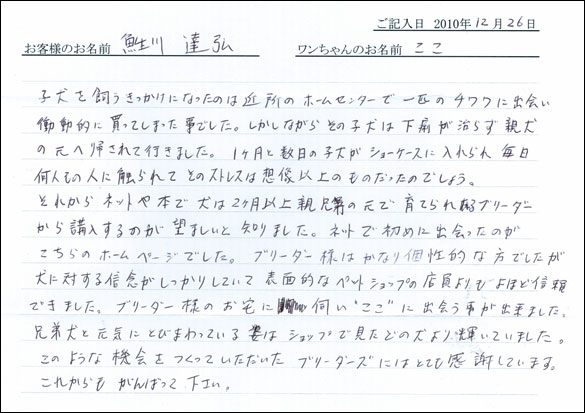 ご記入日 2010年12月26日
お客様のお名前 鮏川 達弘 ワンちゃんのお名前 ここ
子犬を飼うきっかけになったのは近所のホームセンターで一匹のチワワに出会い
働動的に買ってしまった事でした。しかしながらその子犬は下痢が治らず親犬
の元へ帰されて行きました。1ヶ月と数日の子犬がショーケースに入れられ毎日
何人もの人に触られてそのストレスは想像以上のものだったのでしょう。
それからネットや本で犬は2ヶ月以上親兄弟の元で育てられたブリーダー
から購入するのが望ましいと知りました。ネットで初めに出会ったのが
こちらのホームページでした。ブリーダー様はかなり個性的な方でしたが
犬に対する信念がしっかりしていて表面的なペットショップの店員よりもよほど信頼
できました。ブリーダー様のお宅に伺い"ここ"に出会う事が出来ました。
兄弟犬と元気にとびまわっている姿はショップで見たどの犬より輝いていました。
このような機会をつくっていただいたブリーダーズにはとても感謝しています。
これからもがんばって下さい。